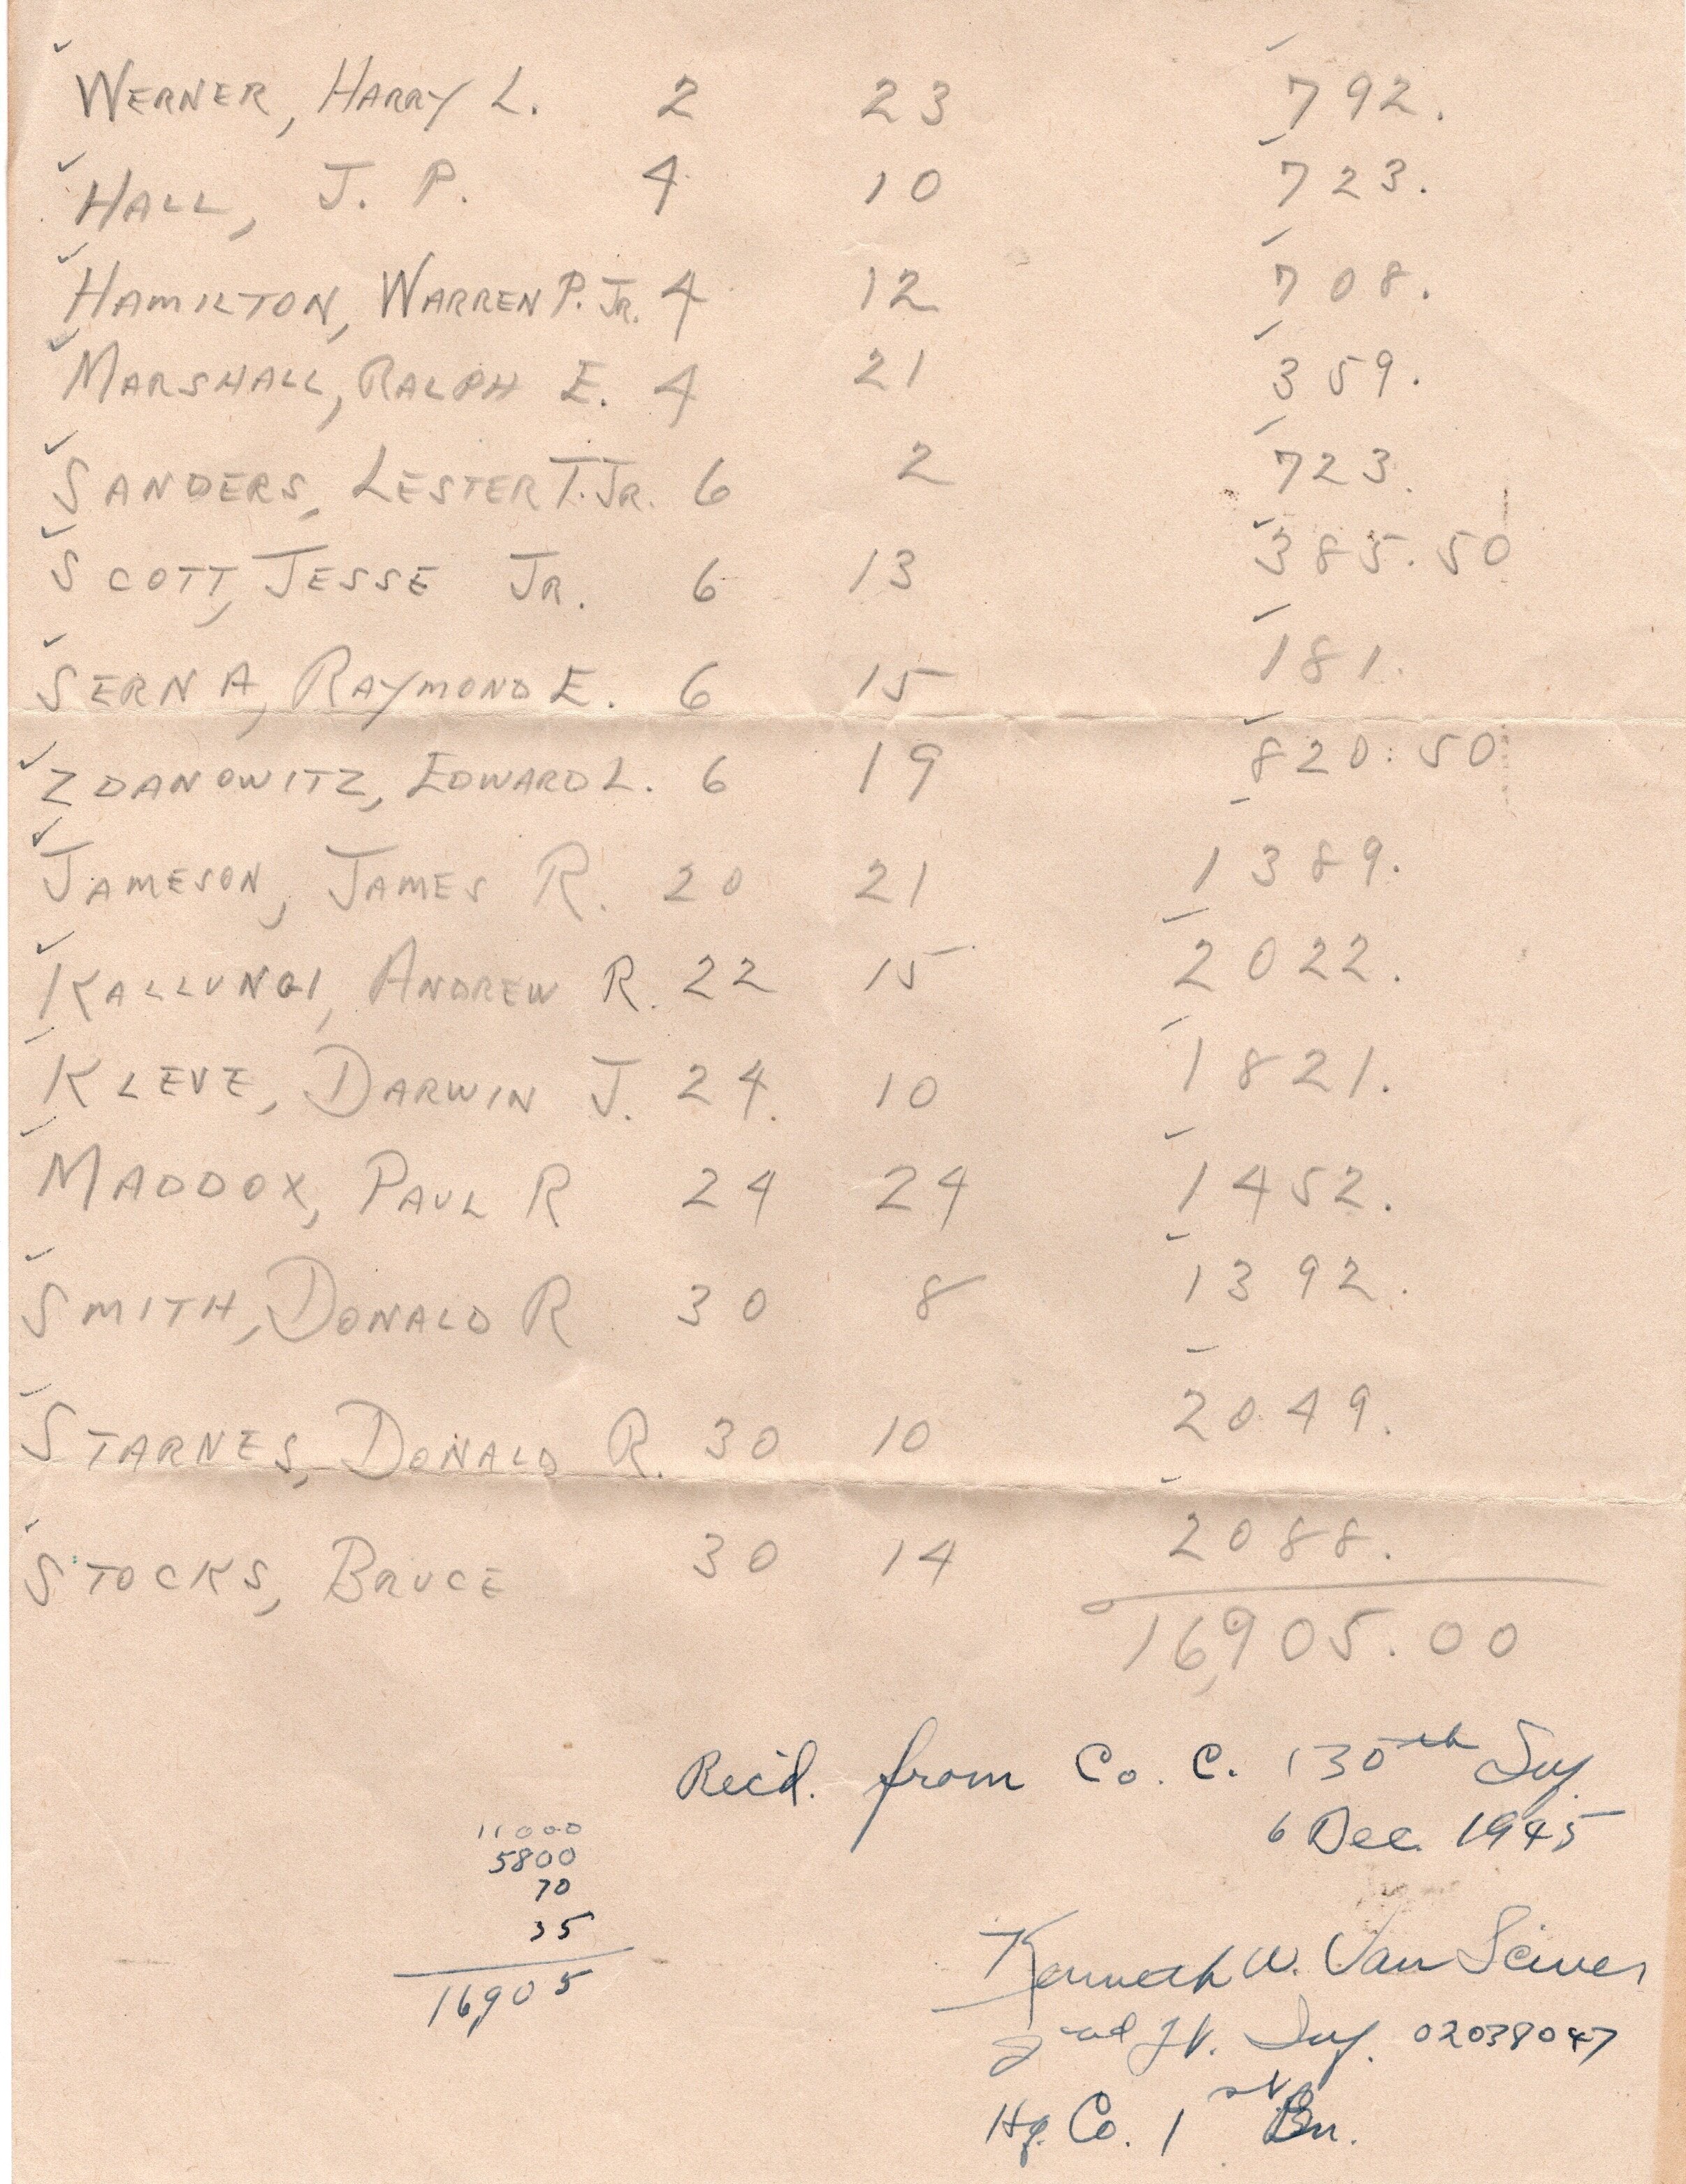 WERNER, HARRY L. 2 23 792.
HALL, J. P. 4 10 723.
HAMILTON, WARREN P. JR. 4 12 708.
MARSHALL, RALPH E. 4 21 359.
SANDERS, LESTER T. JR. 6 2 723.
SCOTT, JESSE JR. 6 13 385.50
SERNA, RAYMOND E. 6 15 181.
ZDANOWITZ, EDWARD L. 6 19 820.50
JAMESON, JAMES R. 20 21 1389.
KALLUNGI, ANDREW R. 22 15 2022.
KLEVE, DARWIN J. 24 10 1821.
MADDOX, PAUL R 24 24 1452.
SMITH, DONALD R 30 8 1392.
STARNES, DONALD R. 30 10 2049.
STOCKS, BRUCE 30 14 2088.
16,905.00
Rec'd. from Co. C. 130th Inf.
6 Dec. 1945
11000
5800
70
35
16,905
Kenneth W. Van Sciver
2nd Lt. Inf. 02038047
Hq. Co. 1st Bn.